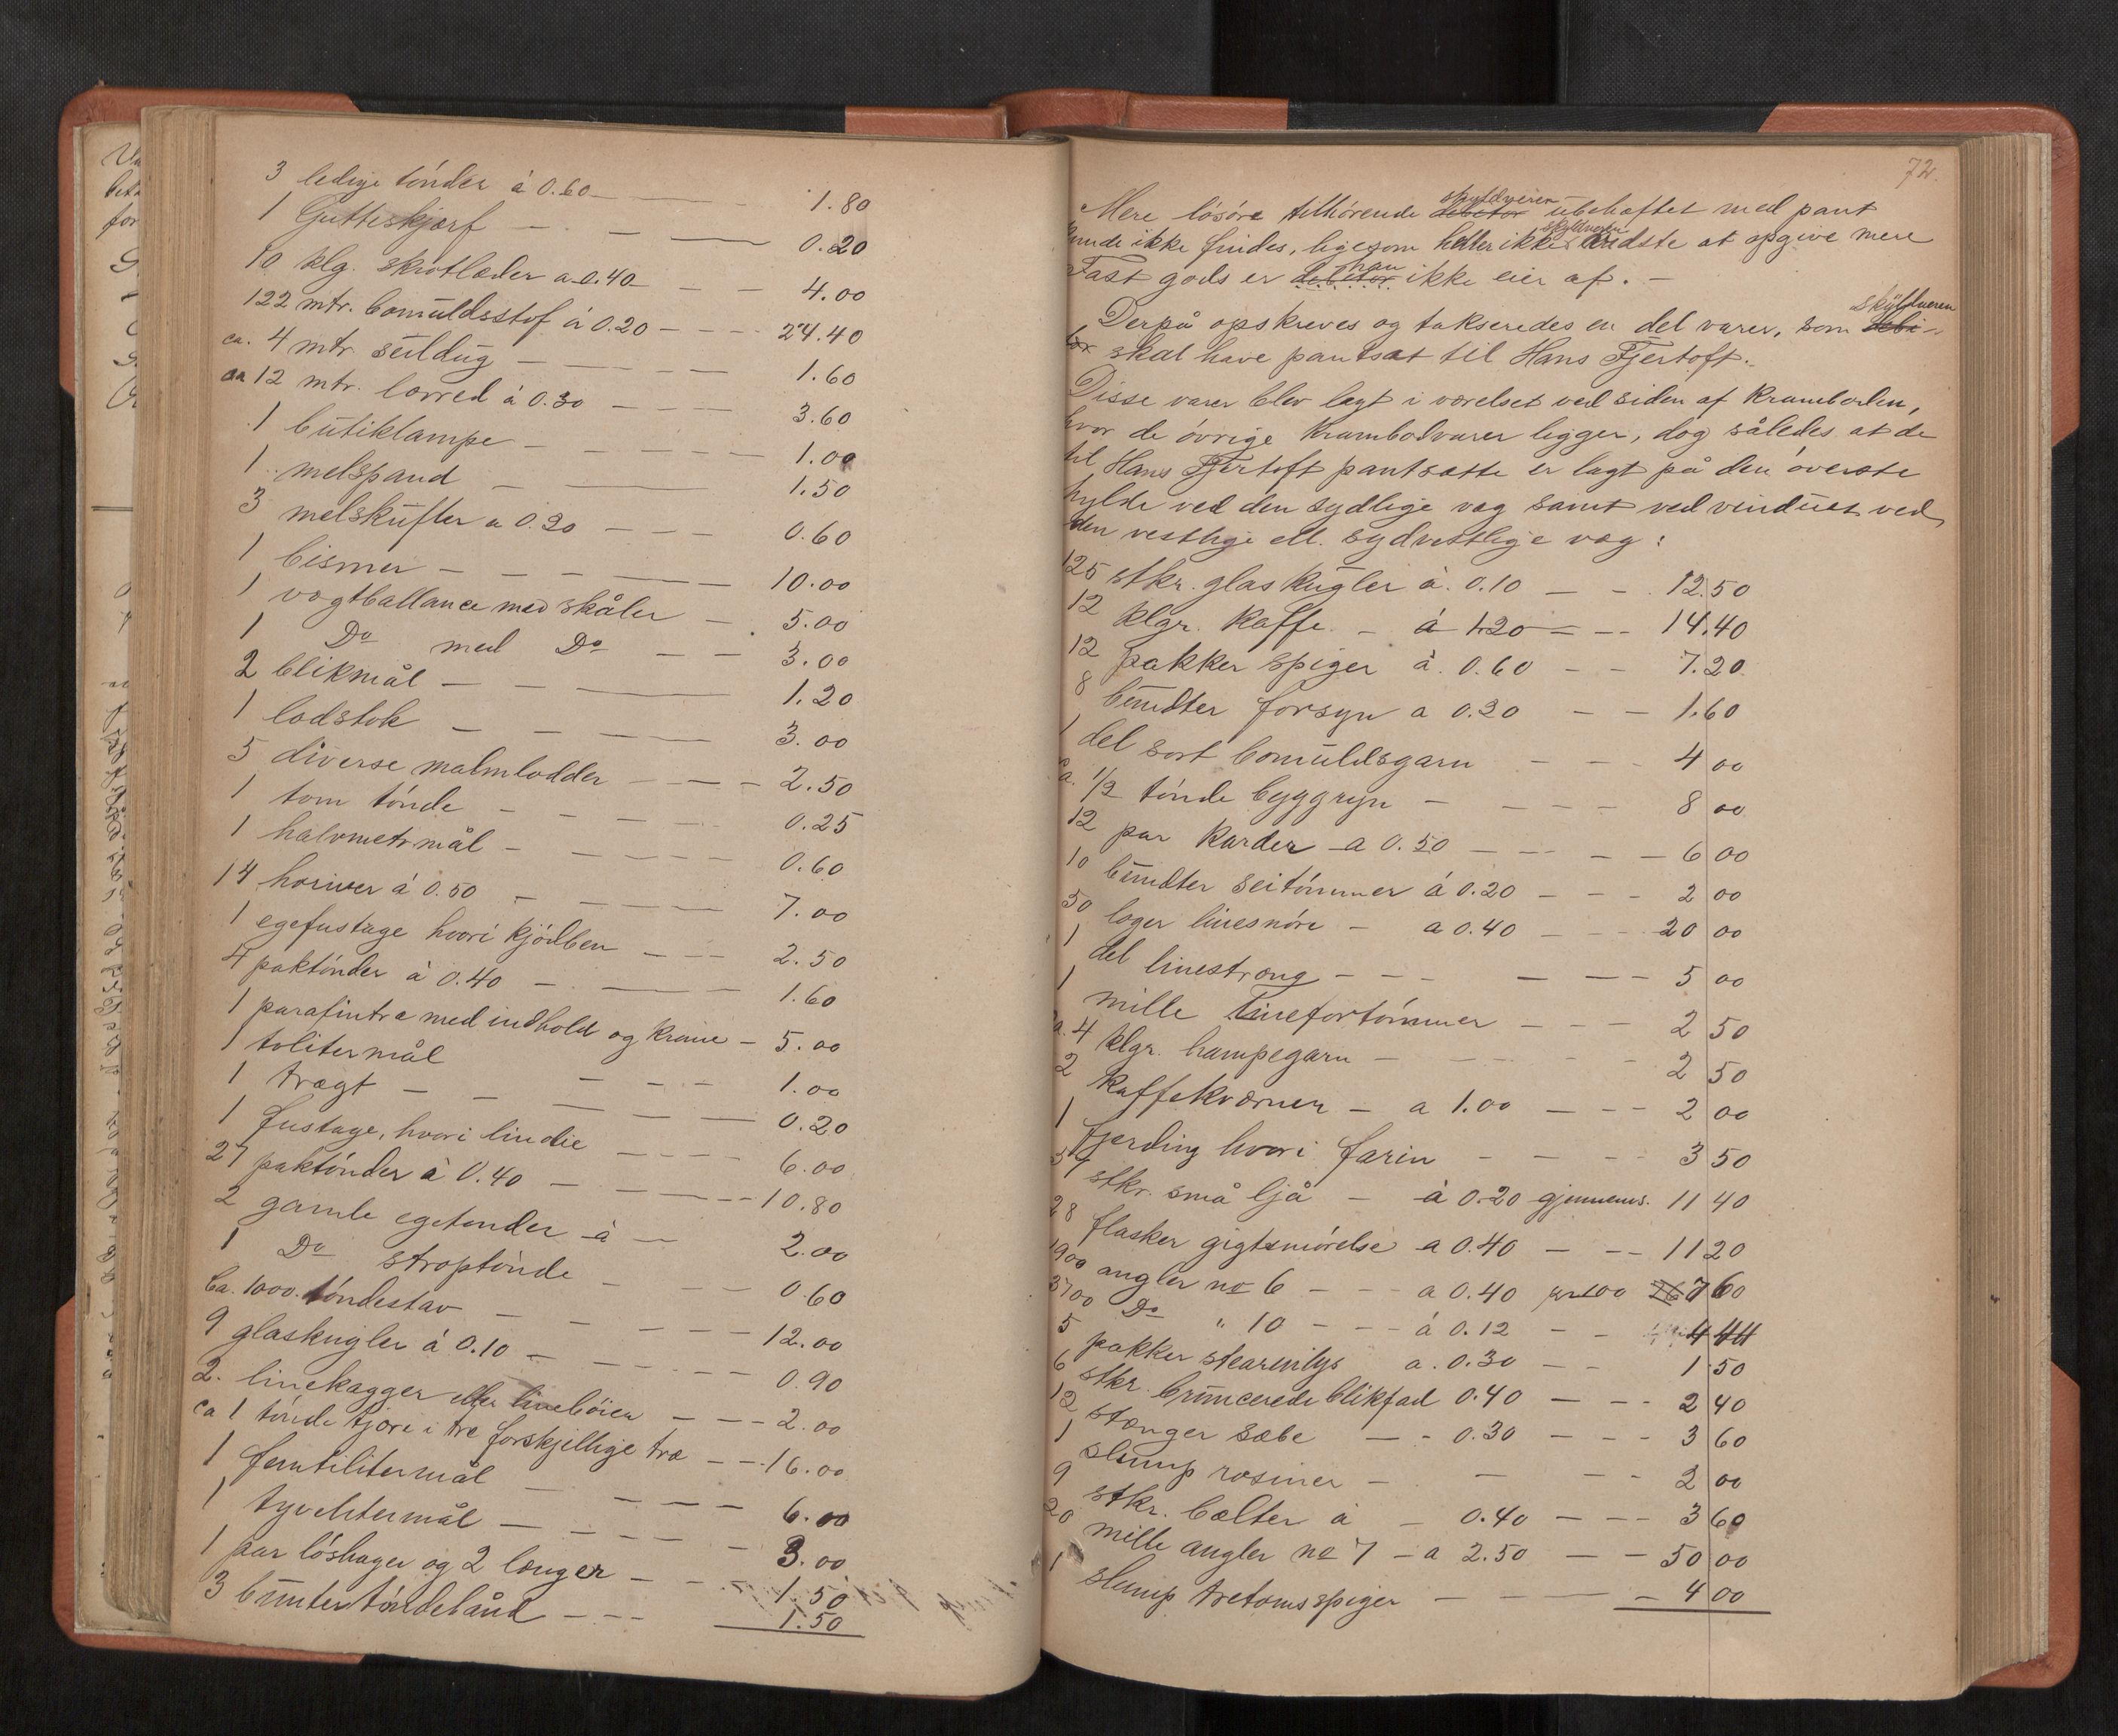 3 ledige tónder á 0.60 — 1.80
1 Gutteskjærf — — — 0.20
10 klg. skrotlæder a 0.40 — — 4.00
122 mtr. bomuldsstof á 0.20 — — — 24.40
ca. 4 mtr seildug — — — — 1.60
ca 12 mtr. lærred á 0.30 — — — 3.60
1 butiklampe — — — — — 1.00
1 melspand — — 1.50
3 melskufler a 0.20 — — — 0.60
1 bismer — — — — — 10.00
1 vægtballance med skåler — 5.00
1 Do med Do — — 3.00
2 blikmål — — — 1.20
1 lodstok — — — 3.00
5 diverse malmlodder — — — 2.50
1 tom tónde — — — — 0.25
1 halvmetermål — — — — 0.60
14 høriver á 0.50 — — — — 7.00
1 egefustage hvori kjódben — — — 2.50
4 paktónder á 0.40 — — — 1.60
1 parafintræ med indhold og krane — 5.00
1 tolitermål — — — 1.00
1 trægt — — — — 0.20
1 fustage, hvori lindie — — — — 6.00
27 paktónder á 0.40 — — — — 10.80
2 gamle egetonder á — 2.00
1 Do stroptónde — — — 0.60
Ca. 1000 tóndestav — — — — 12.00
9 glaskugler á 0.10 — — — — 0.90
2. linekagger eller linebóier — — — 2.00
ca 1 tónde tjære i tre forskjellige træ — — 16.00
1 femtilitermål — — — — 6.00
1 tyvelitermål — — — — 3.00
1 par lóshager og 2 længer — — 1.50
3 bunter tóndebånd — — — 1.50
72.
Mere lósóre tilhórende debetor skyldneren ubeheftet med pant
kunde ikke findes, ligesom heller ikke skyldneren vidste at opgive mere
Fast gods er debetor han ikke eier af. —
Derpå opskreves og takseredes en del varer, som debi- skyldneren
tor skal have pantsat til Hans Fjertoft.
Disse varer blev lagt i værelset ved siden af Kramboden,
hvor de óvrige Krambodvarer ligger, dog således at de
til Hans Fjertoft pantsatte er lagt på den óverste
hylde ved den sydlige væg samt ved vinduet ved
den vestlige ell. sydvestlige væg:
125 stkr. glaskugler á. 0.10 — — 12.50
12 klgr. Kaffe — á 1.20 — — 14.40
12 pakker spiger á. 0.60 — — 7.20
8 bundter forsyn a 0.20 — — 1.60
1 del sort bomuldsgarn — — — 4 00
Ca. 1/2 tónde byggryn — — — — 8 00
12 par Karder a 0.50 — — — — 6 00
10 bundter seitómmer á 0.20 — — — 2 00
50 loger linesnóre — a 0.40 — — — 20 00
1 del linestræng — — — — — — 5 00
1 mille Linefortómmer — — — 2 50
ca. 4 klgr. hampegarn — — — — 2 50
2 Kaffekværner — a 1.00 — — — 2 00
1 fjerding hvori farin — — — — 3 50
57 stkr. små ljå — á 0.20 gjennems. 11 40
28 flasker gigtsmórelse a 0.40 — — — 11 20
1900 angler no 6 — — — a 0.40 pr 100 7 60
3700 Do " 10 — — — á 0.12 — — 4 44
5 pakker stearinlys a. 0.30 — — 1 50
6 stkr. bruncerede blikfad 0.40 — — — 2 40
12 stænger sæbe — — 0.30 — — — 3 60
1 slump rosiner — — — — 2 00
9 stkr. bælter á — 0.40 — — — 3 60
20 mille angler no 7 — a 2.50 — — 50 00
1 slump tretomsspiger — — — — 4 00